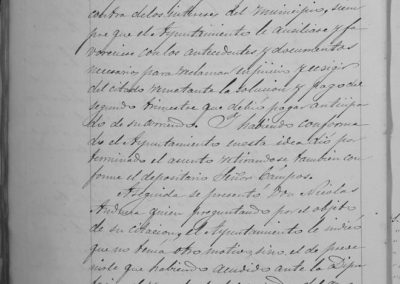 contra de los intereses del municipio, siem
pre que el Ayuntamiento le auxiliase y fa
voreciese con los antecedentes y documentos
necesarios para reclamar en juicio y exigir
del citado rematante la solucion y pago del
segundo trimestre que debió pagar anticipa
do de su arriendo. Y habiendo conforma
do el Ayuntamiento en esta idea dió por
terminado el asunto retirandose tambien con
forme el depositario Señor Campos.
Aseguida se presentó Don Nicolas
Andueza quien preguntando por el objeto
de su citacion, el Ayuntamiento le indicó
que no tenia otro motivo sino el de preve
nirle que habiendo acudido ante la Dipu